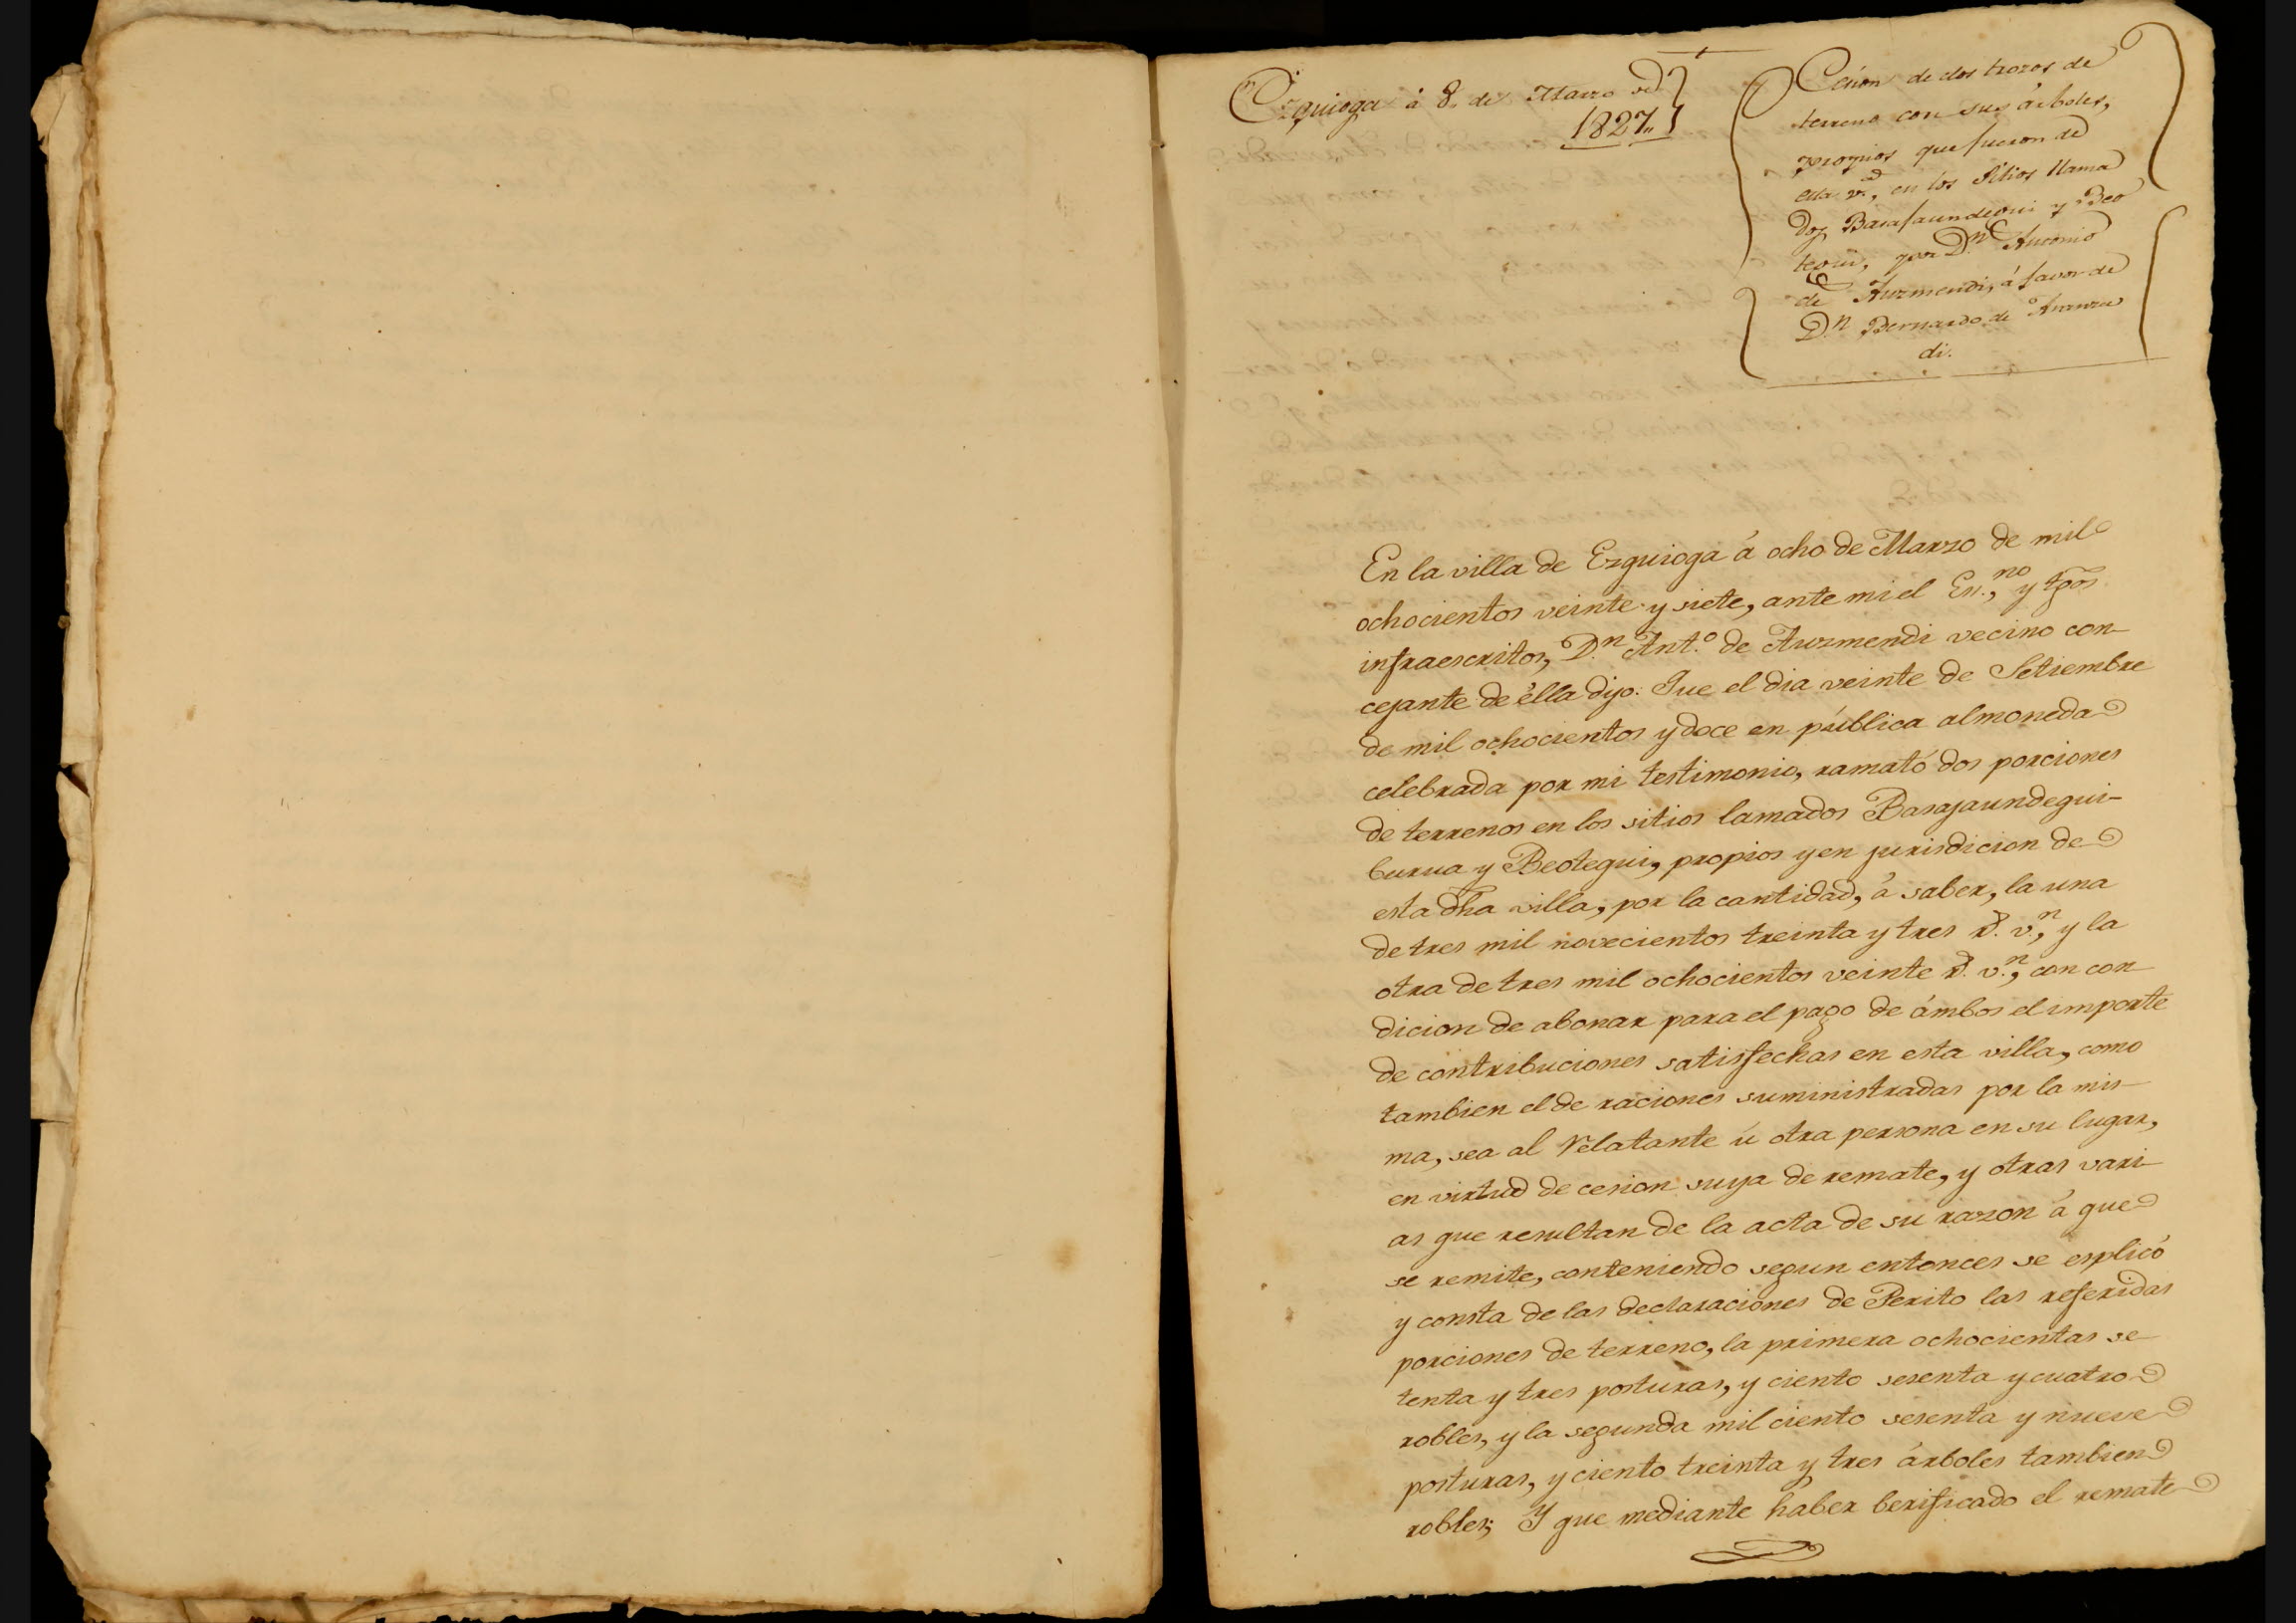 Ezquioga á 8, de Marzo de
1827,,
Cesion de dos trozos de
terreno con sus árboles,
propios que fueron de
esta v.ª, en los sitios llama
dos Basajaundegui y Beo
tegui, por D.n Antonio
de Auzmendi, á favor de
D.n Bernardo de Aramzu
di.
En la villa de Ezquioga á ocho de Marzo de mil
ochocientos veinte y siete, ante mi el Es.no, y tgos
infraescritos, D.n Ant.o de Auzmendi vecino con-
cejante de élla dijo: Que el dia veinte de Setiembre
de mil ochocientos y doce en pública almoneda
celebrada por mi testimonio, ramató dos porciones
de terrenos en los sitios lamados Basajaundegui-
burua y Beotegui, propios y en jurisdicion de
esta dha villa, por la cantidad, á saber, la una
de tres mil novecientos treinta y tres r.s v.n, y la
otra de tres mil ochocientos veinte r.s v.n, con con
dicion de abonar para el pago de ámbos el importe
de contribuciones satisfechas en esta villa, como
tambien el de raciones suministradas por la mis-
ma, sea al Relatante ú otra persona en su lugar,
en virtud de cesion suya de remate, y otras vari-
as que resultan de la acta de su razon á que
se remite, conteniendo segun entonces se esplicó
y consta de las declaraciones de Perito las referidas
porciones de terreno, la primera ochocientas se-
tenta y tres posturas, y ciento sesenta y cuatro
robles, y la segunda mil ciento sesenta y nueve
posturas, y ciento treinta y tres árboles tambien
robles; Y que mediante haber berificado el remate